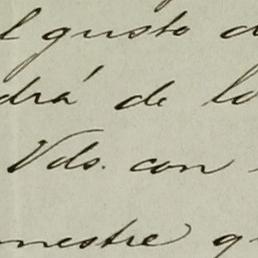 l gusto d
drá de lo
Vds. con
mestre q